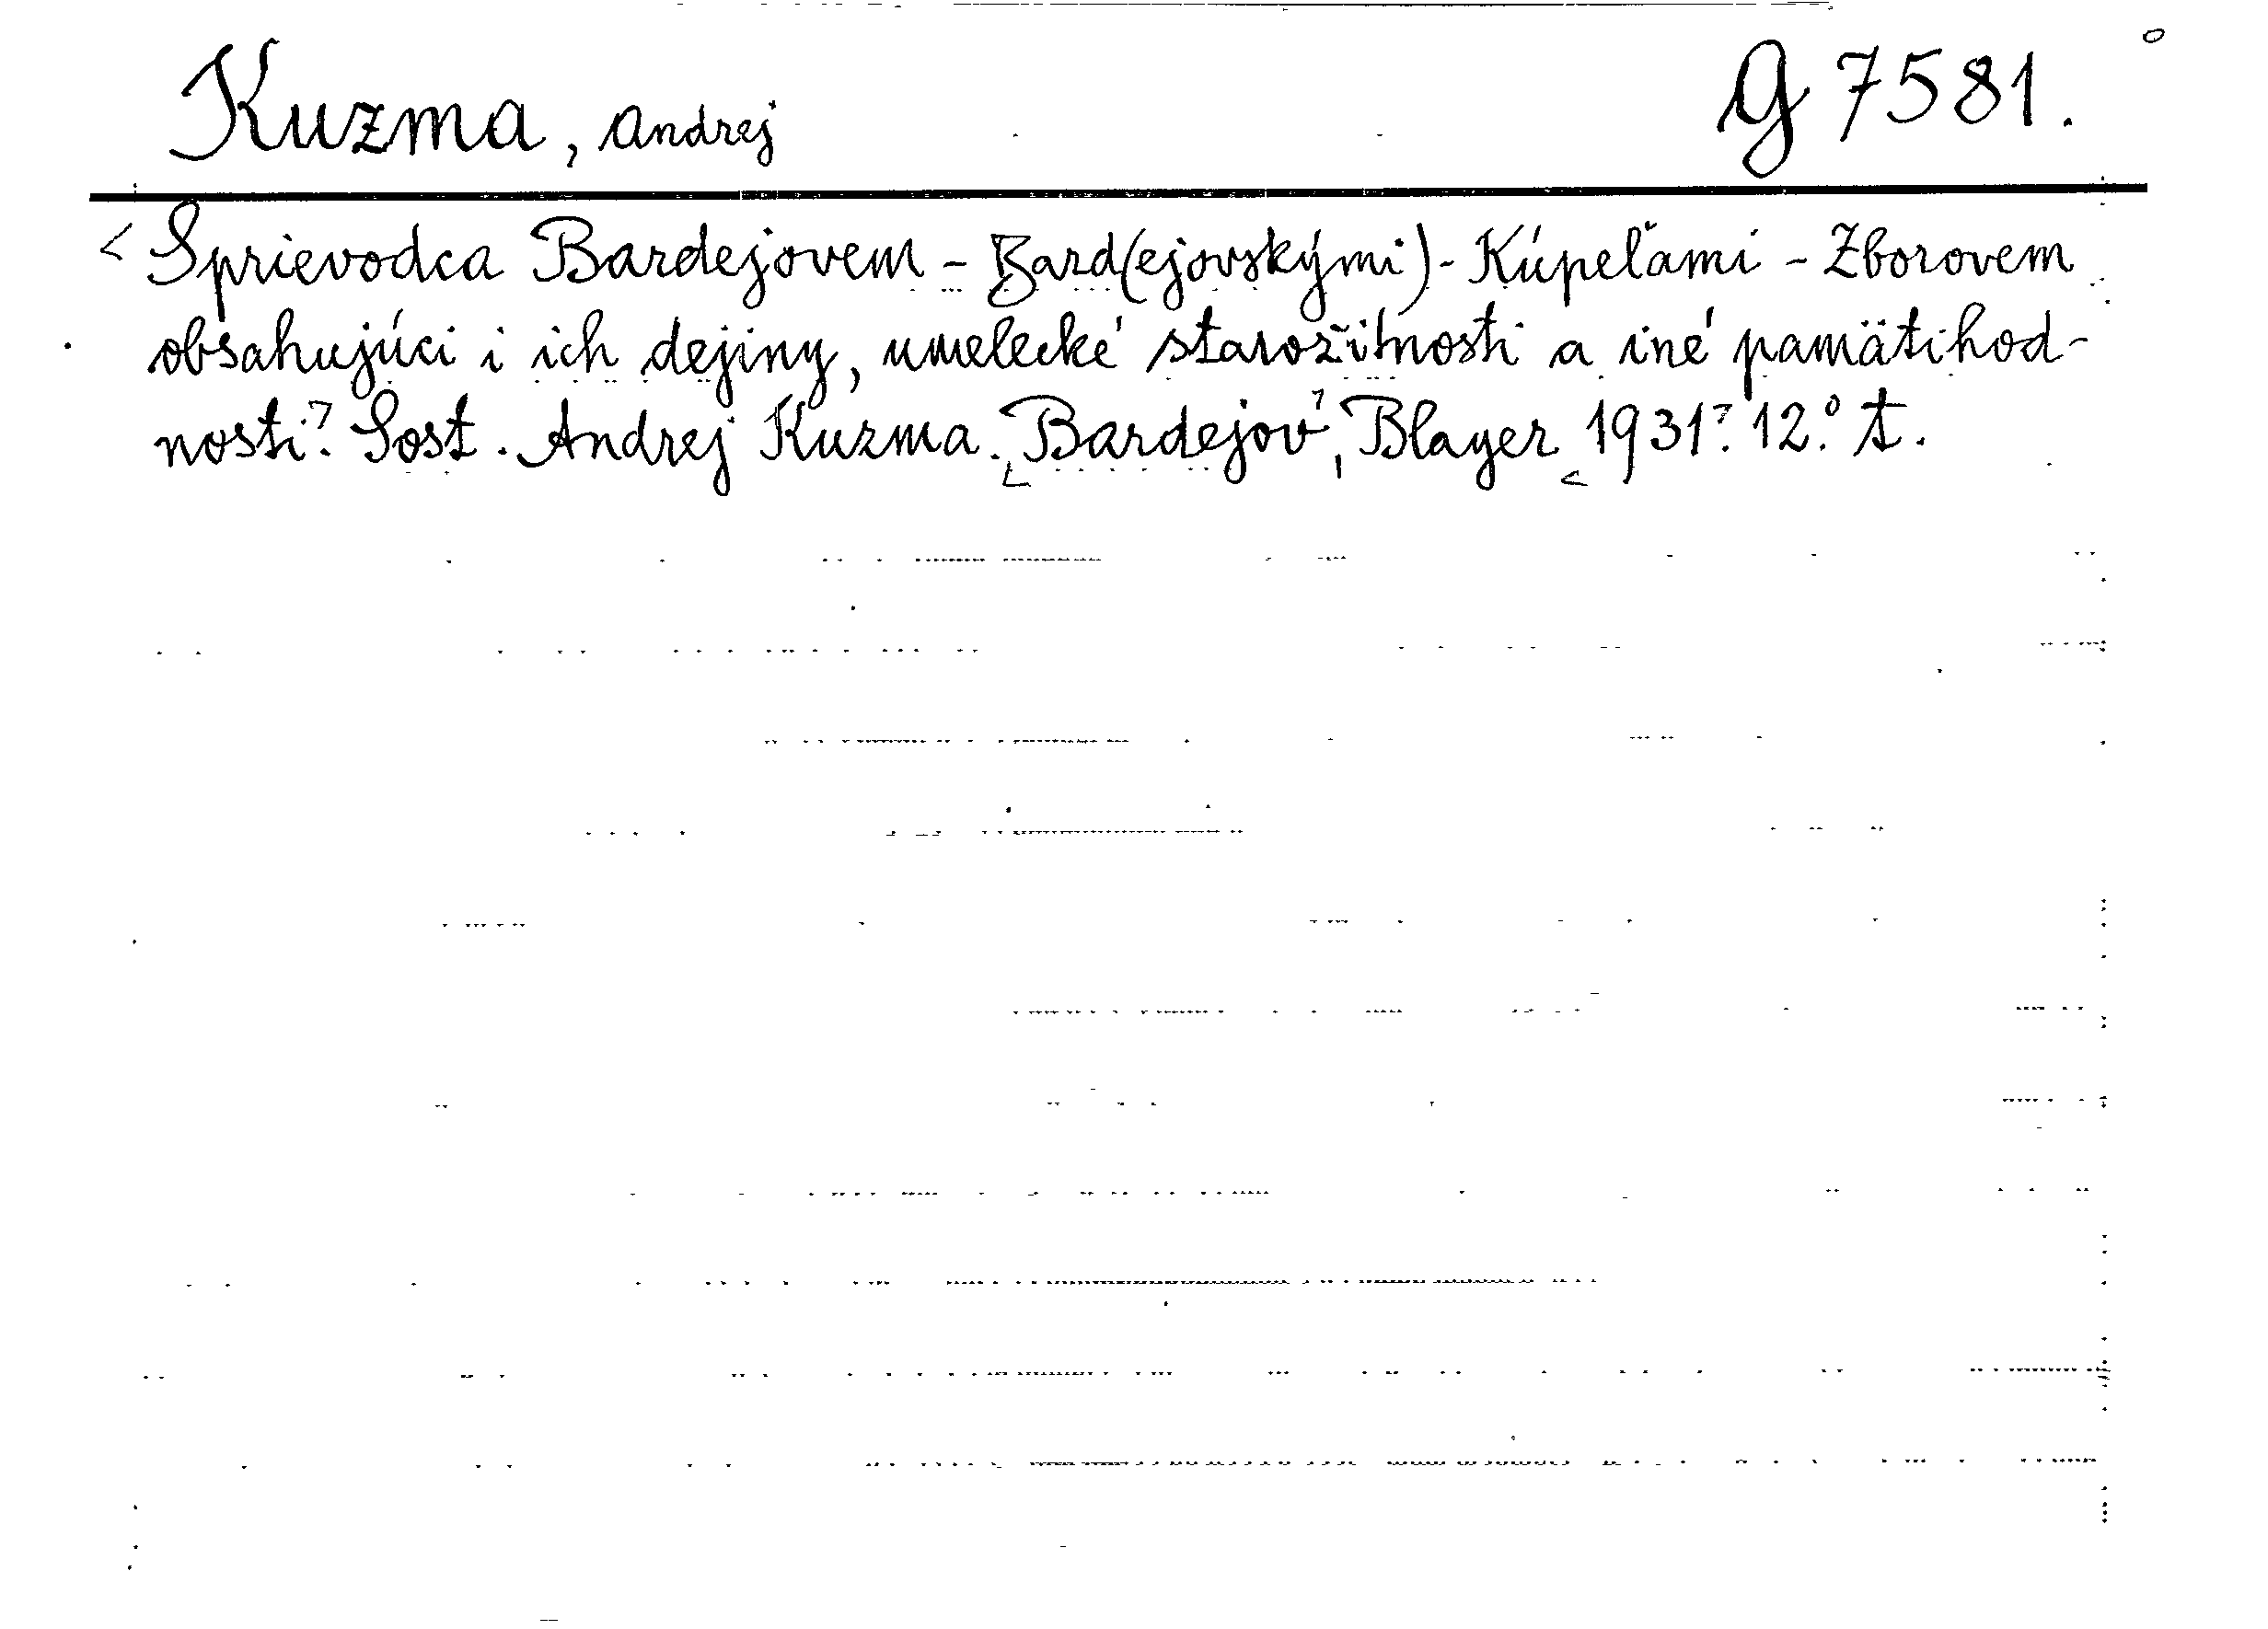 Kuzma, Andrej G 7581.
Sprievodca Bardejovem - Bard(ejovskými) - Kúpeľami - Zborovem
obsahujúci i ich dejiny, umelecké starožitnosti a iné pamätihod-
nosti. Sost. Andrej Kuzma. Bardejov, Blayer 1931. 12.° t.